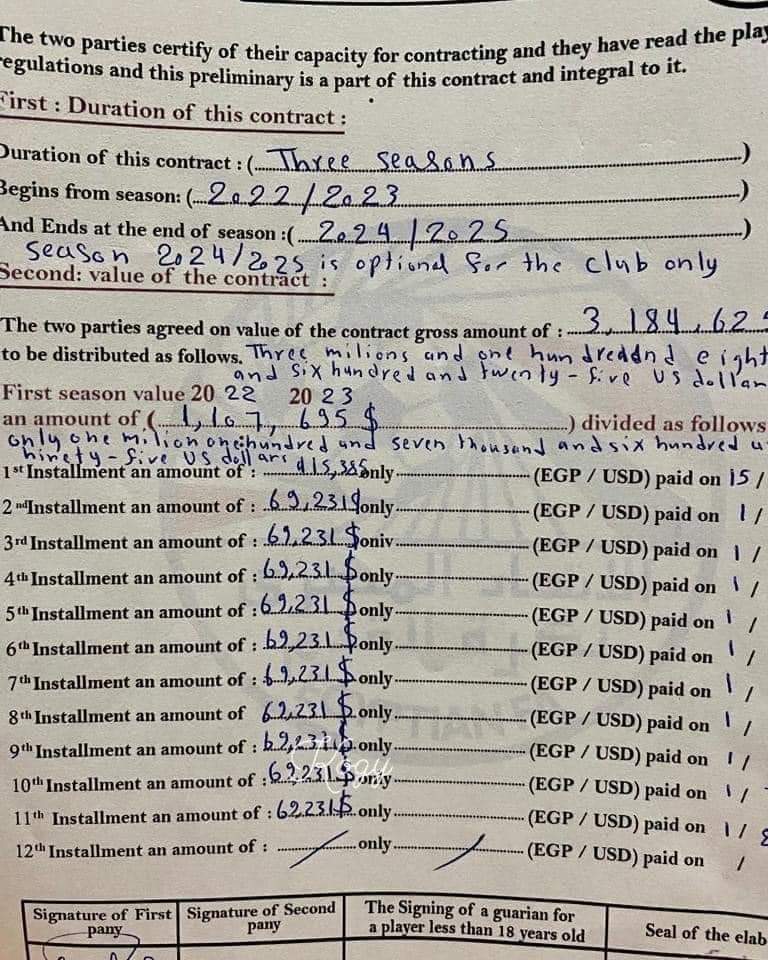 The two parties certify of their capacity for contracting and they have read the play
regulations and this preliminary is a part of this contract and integral to it.
First : Duration of this contract :
Duration of this contract : (...Three seasons...)
Begins from season: (...2022/2023...)
And Ends at the end of season :(...2024/2025...)
season 2024/2025 is optional for the club only
Second: value of the contract :
The two parties agreed on value of the contract gross amount of : ...3,184,62
to be distributed as follows. Three milions and one hundred and eight
and six hundred and twenty-five US dollar
First season value 20 22 20 23
an amount of (...1,107,695 $...) divided as follows
only one milion one hundred and seven thousand and six hundred
ninety-five US dollars
1st Installment an amount of : ...415,385 only ... (EGP / USD) paid on 15/
2nd Installment an amount of : 69,231$ only ... (EGP / USD) paid on 1/
3rd Installment an amount of : 69,231 $ only ... (EGP / USD) paid on 1/
4th Installment an amount of : 69,231 $ only ... (EGP / USD) paid on 1/
5th Installment an amount of : 69,231 $ only ... (EGP / USD) paid on 1/
6th Installment an amount of : 69,231 $ only ... (EGP / USD) paid on 1/
7th Installment an amount of : 69,231 $ only ... (EGP / USD) paid on 1/
8th Installment an amount of 69,231 $ only ... (EGP / USD) paid on 1/
9th Installment an amount of : 69,231 $ only ... (EGP / USD) paid on 1/
10th Installment an amount of : 69,231 $ only ... (EGP / USD) paid on 1/
11th Installment an amount of : 69,231 $ only ... (EGP / USD) paid on 1/
12th Installment an amount of : ... only ... (EGP / USD) paid on /
Signature of First pany
Signature of Second pany
The Signing of a guarian for
a player less than 18 years old
Seal of the elab